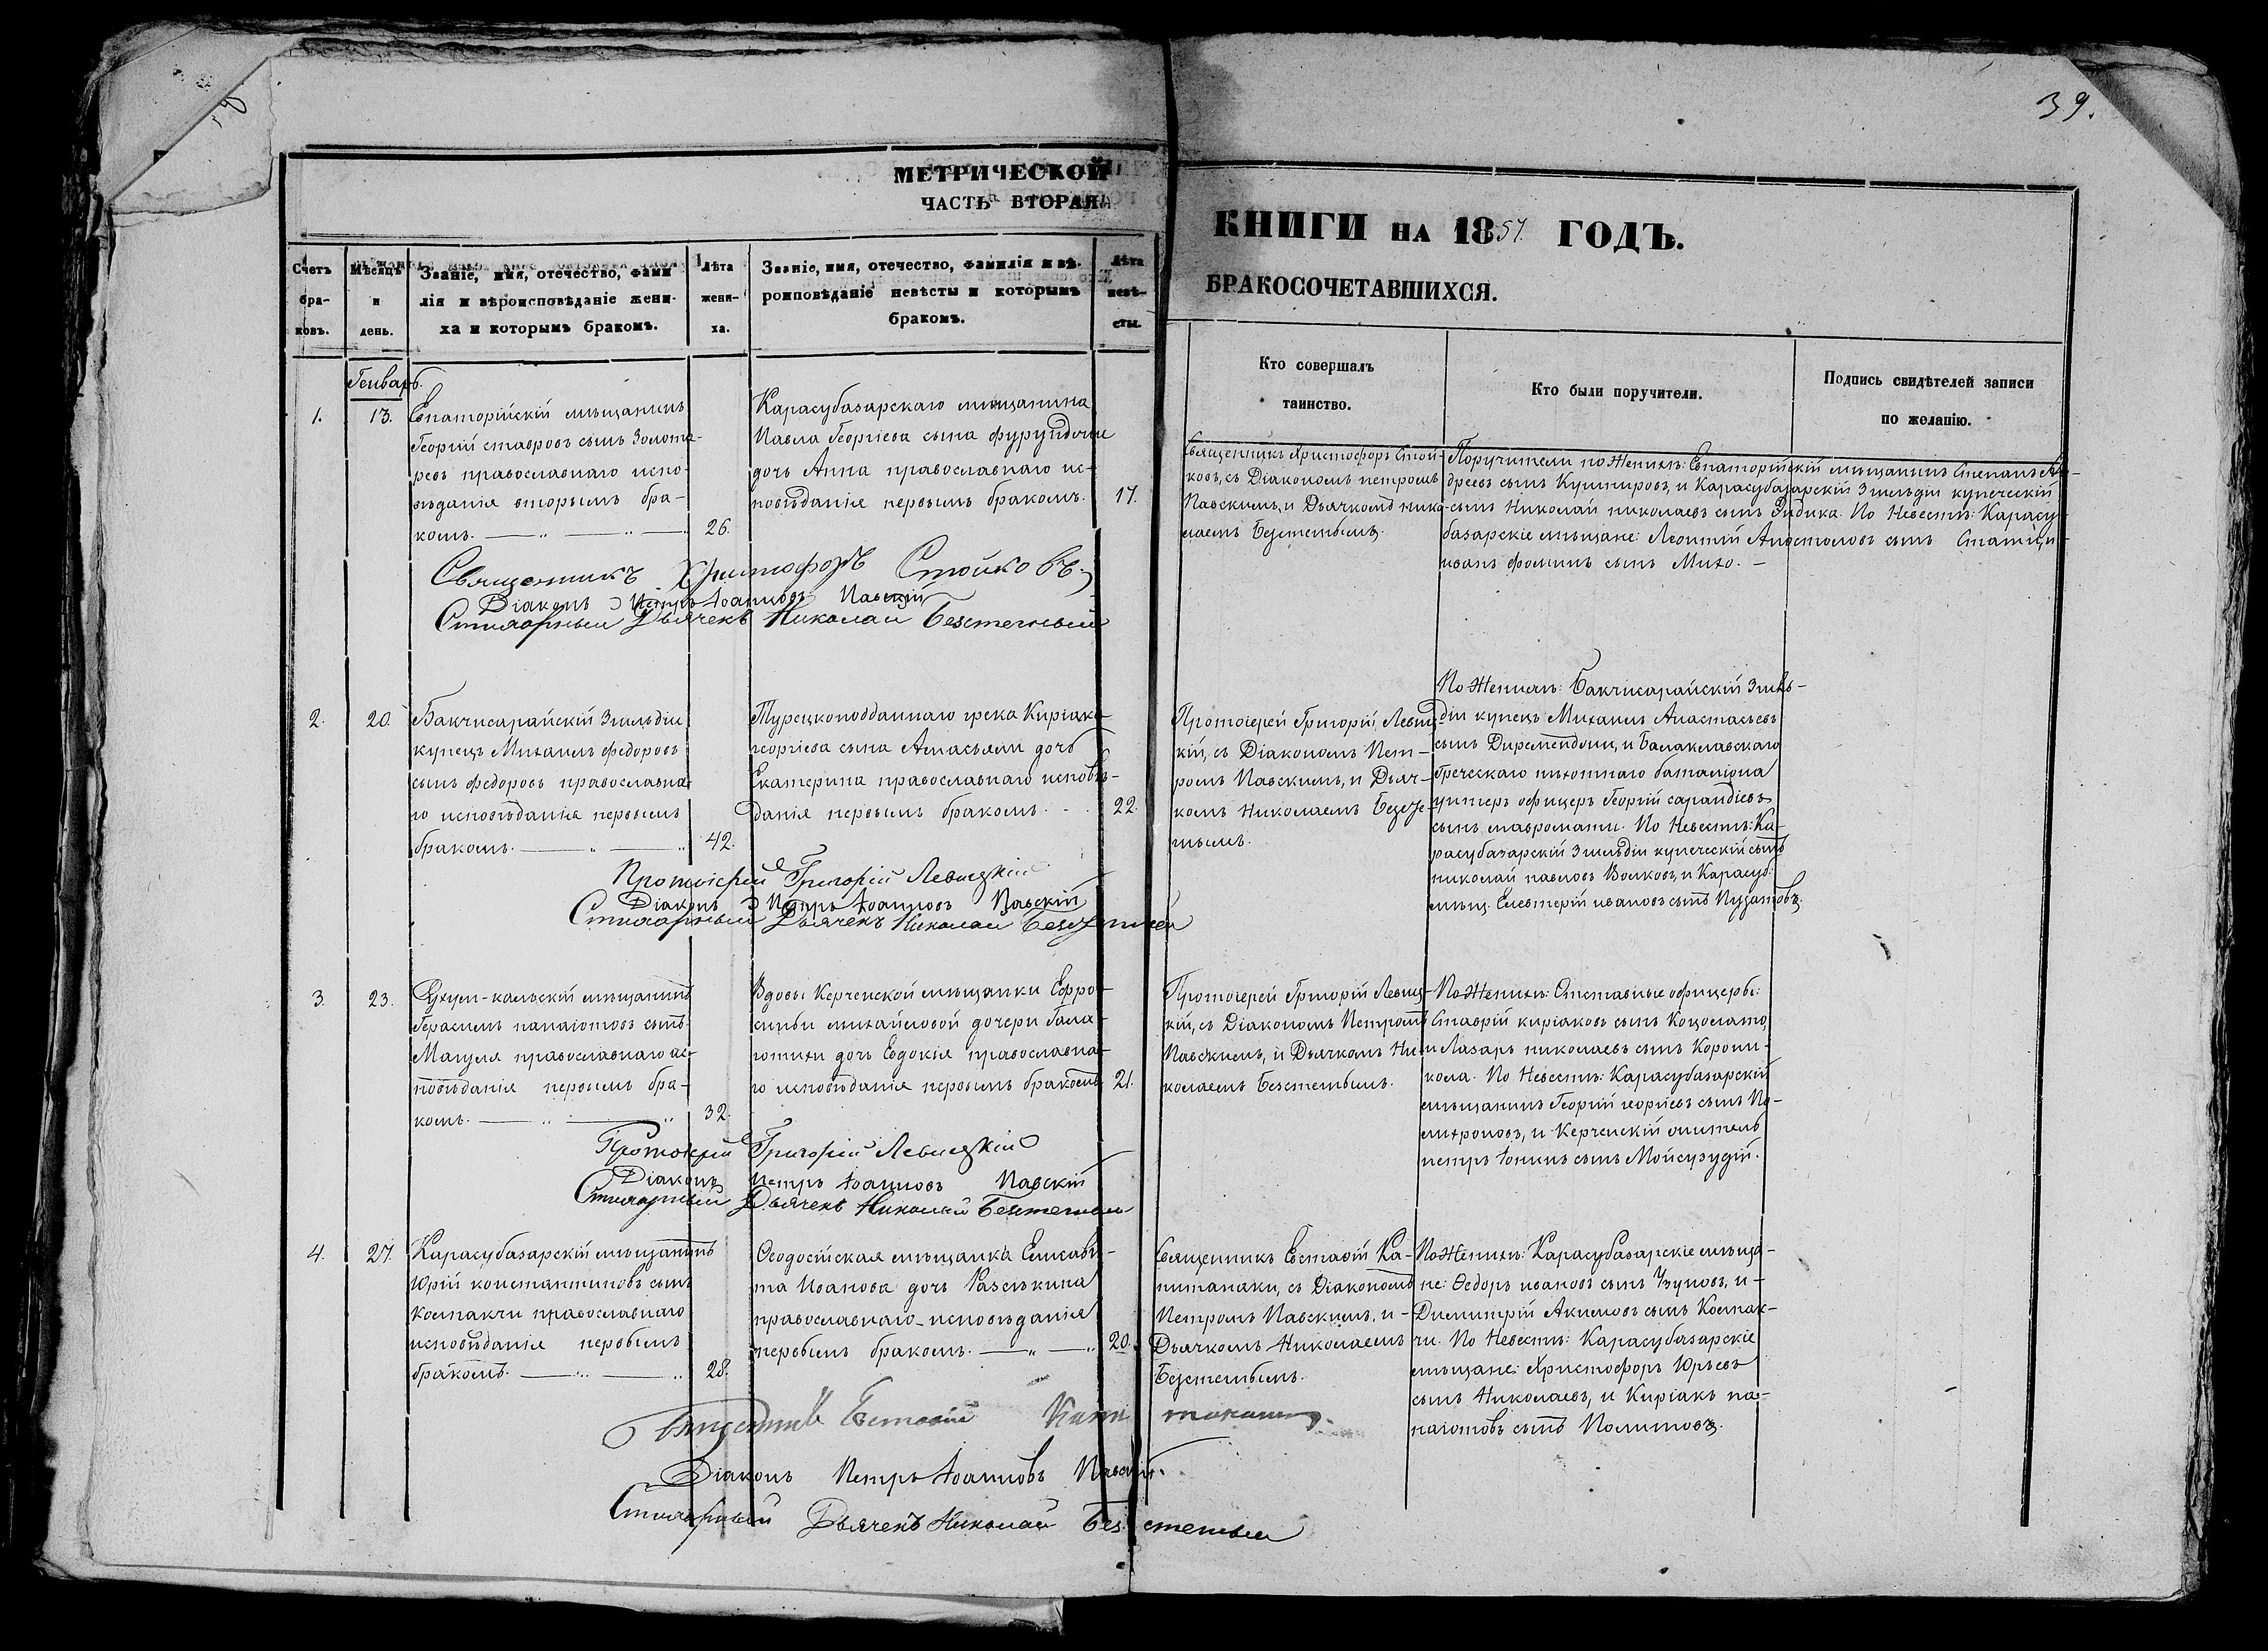 39.
МЕТРИЧЕСКОЙ
ЧАСТЬ ВТОРАЯ
КНИГИ НА 1857. ГОДЪ.
БРАКОСОЧЕТАВШИХСЯ.
Счетъ
бра-
ковъ.
Мѣсяцъ
и
день.
Званіе, имя, отечество, фами
лія и вѣроисповѣданіе жени-
ха и которымъ бракомъ.
Лѣта
жени-
ха.
Званіе, имя, отечество, фамилія и вѣ-
роисповѣданіе невѣсты и которымъ
бракомъ.
Лѣта
невѣ-
сты.
Кто совершалъ
таинство.
Кто были поручители.
Подпись свидѣтелей записи
по желанію.
Генварь.
1.
13.
Евпаторійскій мѣщанинъ
Георгій ставровъ сынъ Золота-
ревъ православнаго испо-
вѣданія вторымъ бра-
комъ.
26.
Карасубазарскаго мѣщанина
Павла Георгіева сына
дочь Анна православнаго ис-
повѣданія первымъ бракомъ.
17.
Священникъ Христофоръ Стой-
ковъ, съ Діакономъ петромъ
Павскимъ, и Дьячкомъ нико-
лаемъ
Поручители по Женихѣ: Евпаторійскій мѣщанинъ Степанъ Ан-
дреевъ сынъ и Карасубазарскій 3 гильдіи купеческій
сынъ Николай николаевъ сынъ По Невестѣ: Карасу-
базарскіе мѣщане: Леонтій Апостоловъ сынъ
иванъ фоминъ сынъ Михо.
Священникъ Христофоръ Стойковъ
Діаконъ Петръ Іоанновъ Павскій
Стихарный Дьячекъ Николай Безстенный
2.
20.
Бакчисарайскій 3 гильдіи
купецъ Михаилъ федоровъ
сынъ федоровъ православна-
го исповѣданія первымъ
бракомъ.
42.
Турецкоподданнаго грека Киріака
георгіева сына дочь
Екатерина православнаго исповѣ-
данія первымъ бракомъ.
22.
Протоіерей Григорій Левиц-
кій, съ Діакономъ Пет-
ромъ Павскимъ, и Дьяч-
комъ Николаемъ

По Женихѣ: Бакчисарайскій 3 гиль-
діи купецъ Михаилъ Анастасьевъ
сынъ и Балаклавскаго
Греческаго пѣхотнаго баталіона
унтеръ офицеръ Георгій сарандіевъ
сынъ мавромати. По Невестѣ: Ка-
расубазарскій 3 гильдіи купеческій сынъ
николай павловъ Волковъ, и Карасуб:
мѣщ. Елевтерій ивановъ сынъ
Протоіерей Григорій Левицкій
Діаконъ Петръ Іоанновъ Павскій
Стихарный Дьячекъ Николай
3.
23.
Сухум-кальскій мѣщанинъ
Герасимъ панаіотовъ сынъ
православнаго ис-
повѣданія первымъ бра-
комъ.
32.
Вдовы Керченской мѣщанки Ефро-
синьи михайловой дочери
дочь Евдокія православна-
го исповѣданія первымъ бракомъ
21.
Протоіерей Григорій Левиц-
кій, съ Діакономъ Петромъ
Павскимъ, и Дьячкомъ Ни-
колаемъ Безстеннымъ.
По Женихѣ: Отставные офицеры:
Ставрій киріаковъ сынъ
и Лазарь николаевъ сынъ Корони-
кола. По Невестѣ: Карасубазарскій
мѣщанинъ Георгій георгіевъ сынъ По-
лихроновъ, и Керченскій житель
петръ сынъ
Протоіерей Григорій Левицкій
Діаконъ петръ Іоанновъ Павскій
Стихарный Дьячекъ Николай Безстенный
4.
27.
Карасубазарскій мѣщанинъ
Юрій константиновъ сынъ
Костакчи православнаго
исповѣданія первымъ
бракомъ.
28.
Ѳеодосійская мѣщанка Елисаве-
та Иванова дочь
православнаго исповѣданія
первымъ бракомъ.
20.
Священникъ Евстафій Ка-
питанаки, съ Діакономъ
Петромъ Павскимъ, и
Дьячкомъ Николаемъ
Безстеннымъ.
По Женихѣ: Карасубазарскіе мѣща-
не: Ѳедоръ ивановъ сынъ Узуновъ, и
Димитрій Акимовъ сынъ Костак-
чи. По Невестѣ: Карасубазарскіе
мѣщане: Христофоръ Юрьевъ
сынъ Николаевъ, и Киріакъ па-
наіотовъ сынъ Политовъ.
Священникъ Евстафій Капитанаки
Діаконъ Петръ Іоанновъ Павскій
Стихарный Дьячекъ Николай Безстенный